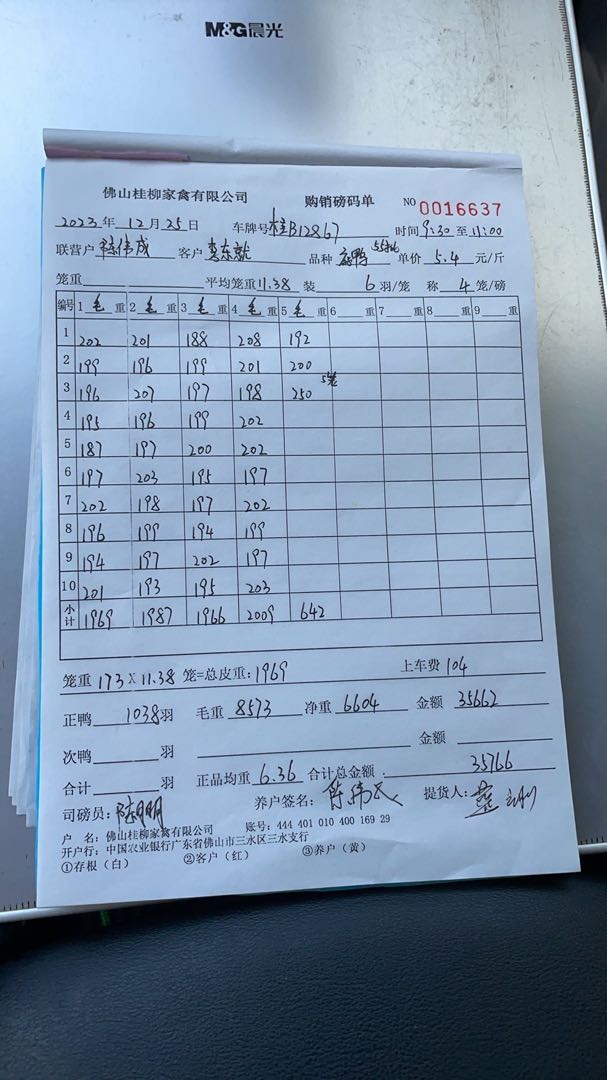 M&G晨光
佛山桂柳家禽有限公司 购销磅码单 NO 0016637
2023年 12月 25日 车牌号 桂B12867 时间 9:30 至 11:00
联营户 陆伟成 客户 李东就 品种 单价 5.4 元/斤
笼重 平均笼重 11.38 装 6 羽/笼 称 4 笼/磅
编号 1 毛 重 2 毛 重 3 毛 重 4 毛 重 5 毛 重 6 重 7 重 8 重 9 重
1 202 201 188 208 192
2 199 196 199 201 200
3 196 207 197 198 250 5笼
4 195 196 199 202
5 187 197 200 202
6 197 203 195 197
7 202 198 197 202
8 196 199 194 199
9 194 197 202 197
10 201 193 195 203
小计 1969 1987 1966 2009 642
笼重 173 X 11.38 笼=总皮重: 1969 上车费 104
正鸭 1038 羽 毛重 8573 净重 6604 金额 35662
次鸭 羽 金额
合计 羽 正品均重 6.36 合计总金额 35766
司磅员: 养户签名: 提货人:
户 名: 佛山桂柳家禽有限公司 账号: 444 401 010 400 169 29
开户行: 中国农业银行广东省佛山市三水区三水支行
①存根(白) ②客户(红) ③养户(黄)